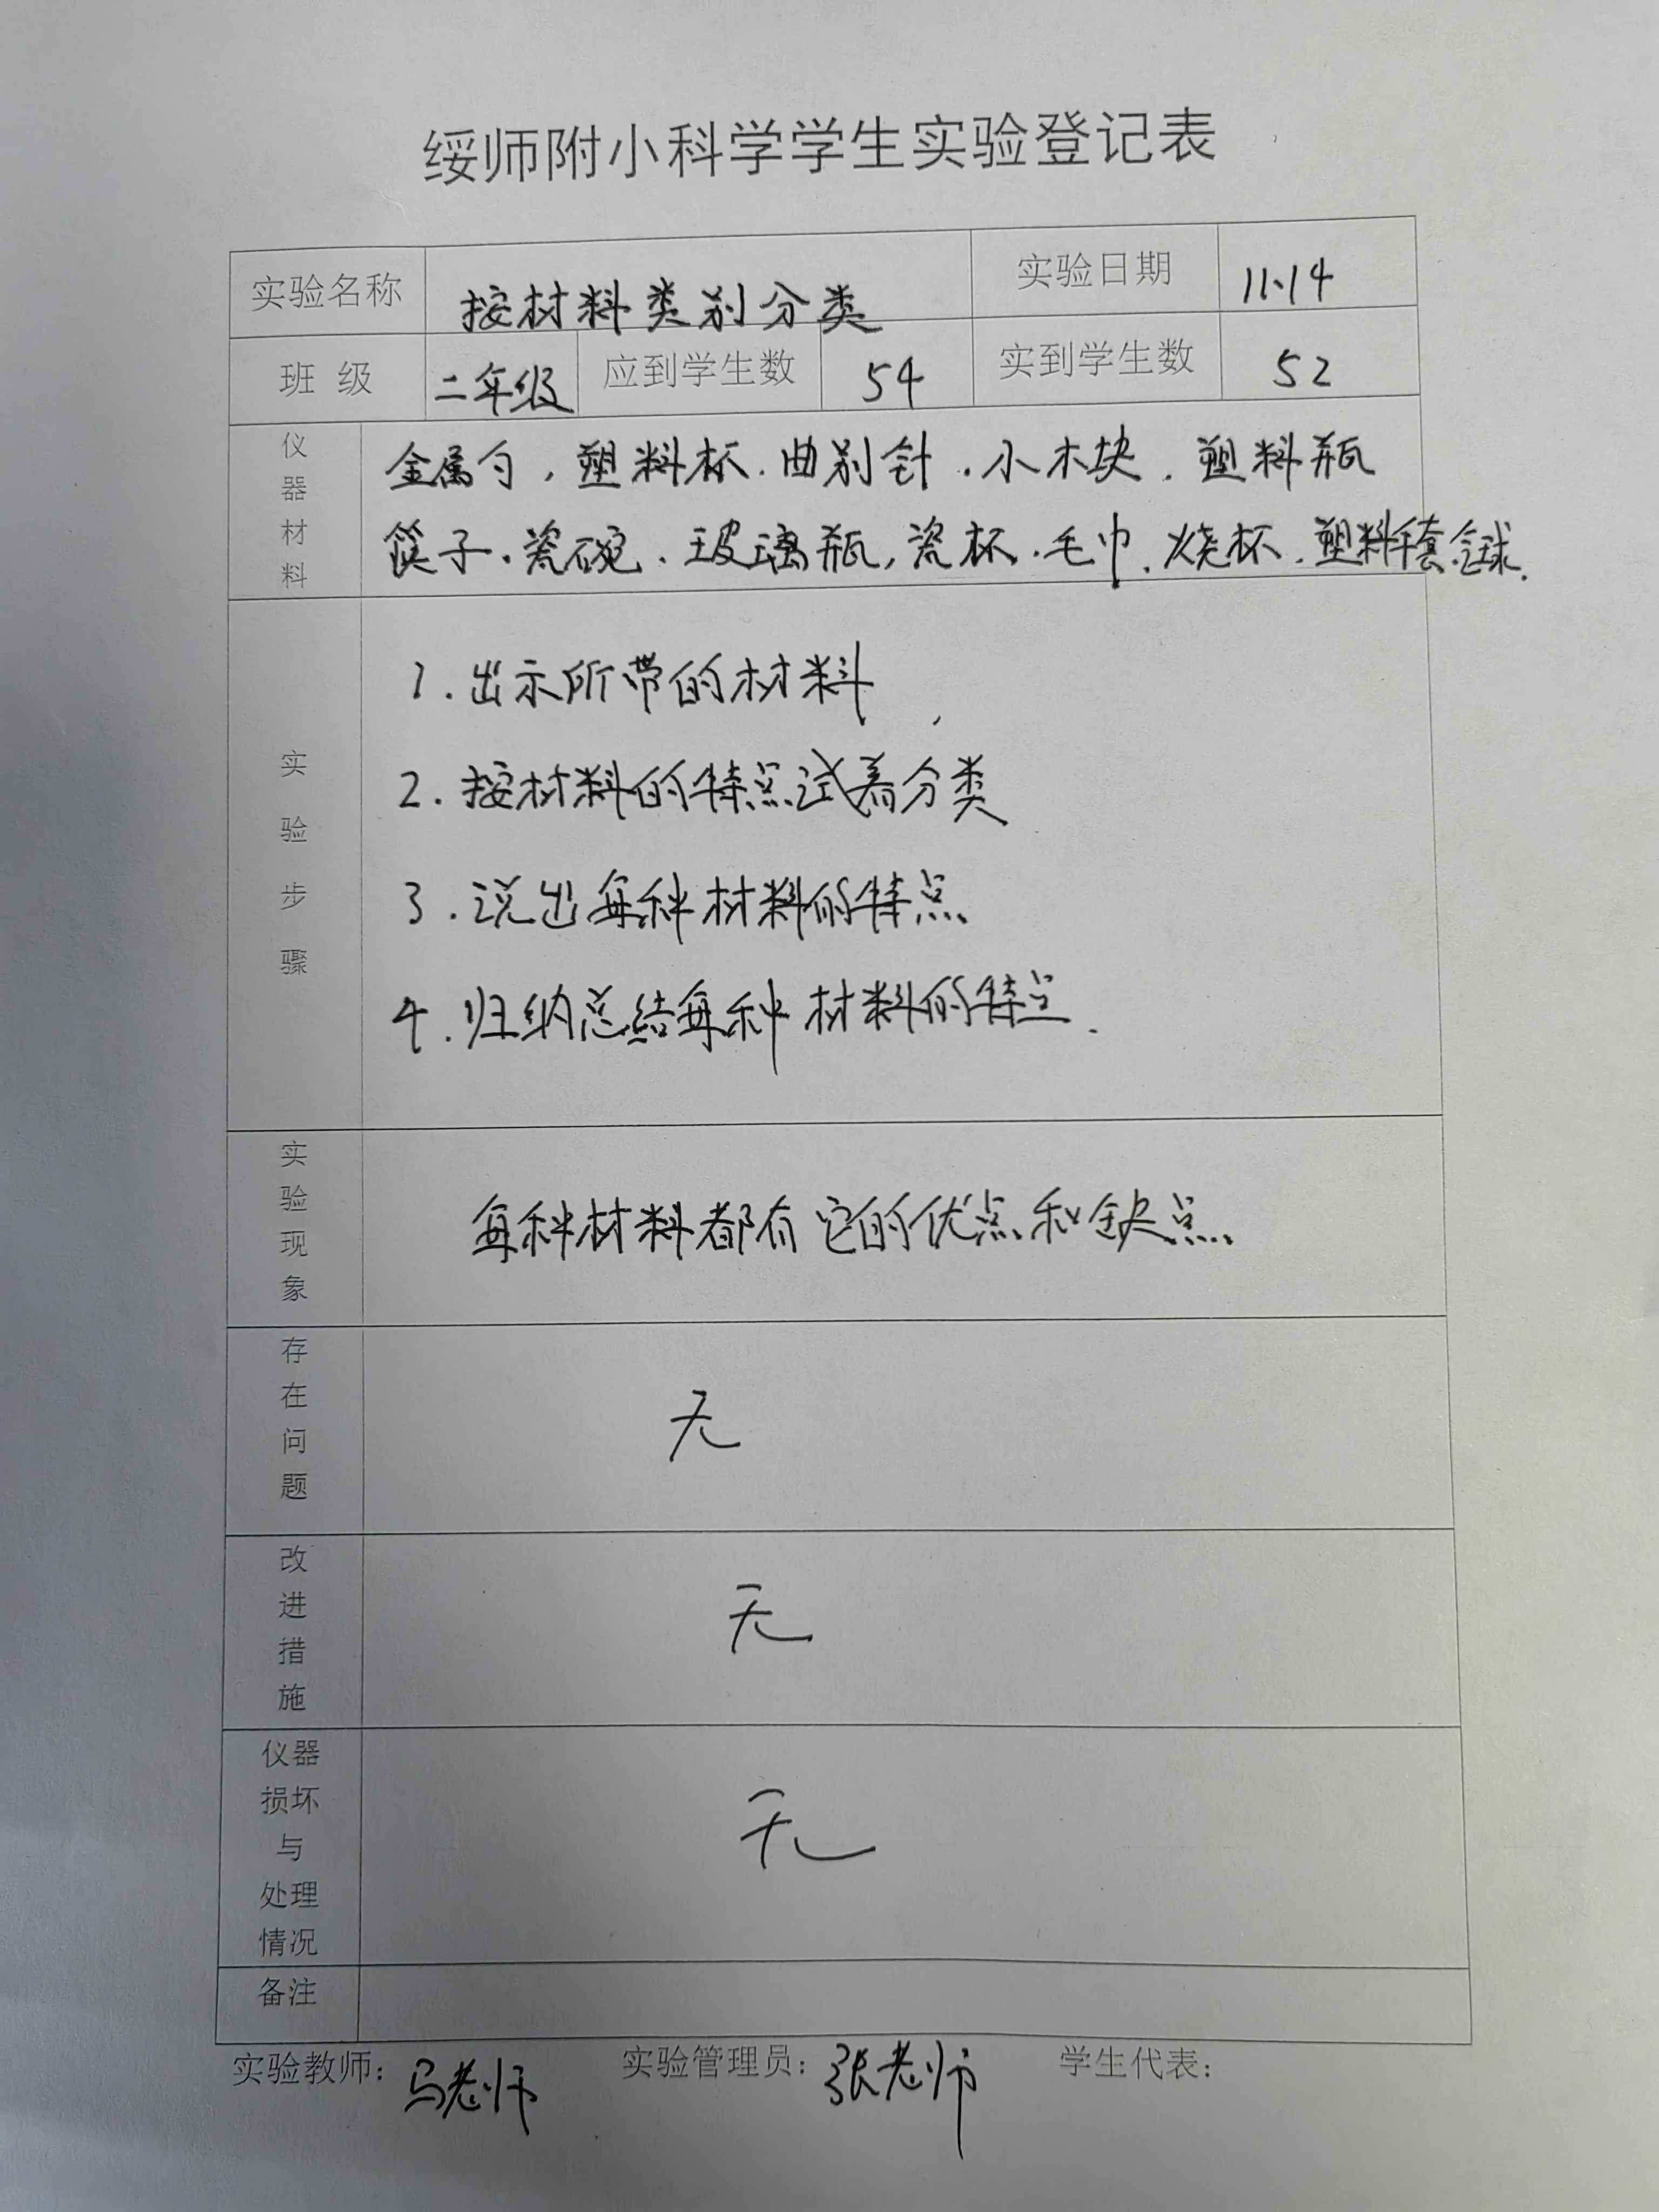 绥师附小科学学生实验登记表
实验名称 按材料类别分类 实验日期 11.14
班 级 二年级 应到学生数 54 实到学生数 52
仪器材料
金属勺，塑料杯．曲别针．小木块．塑料瓶
筷子．瓷碗．玻璃瓶，瓷杯．毛巾．烧杯．塑料手套．
实验步骤
1．出示所带的材料
2．按材料的特点试着分类
3．说出每种材料的特点
4．归纳总结每种材料的特点．
实验现象
每种材料都有它的优点和缺点
存在问题
无
改进措施
无
仪器损坏与处理情况
无
备注
实验教师：马老师 实验管理员：张老师 学生代表：